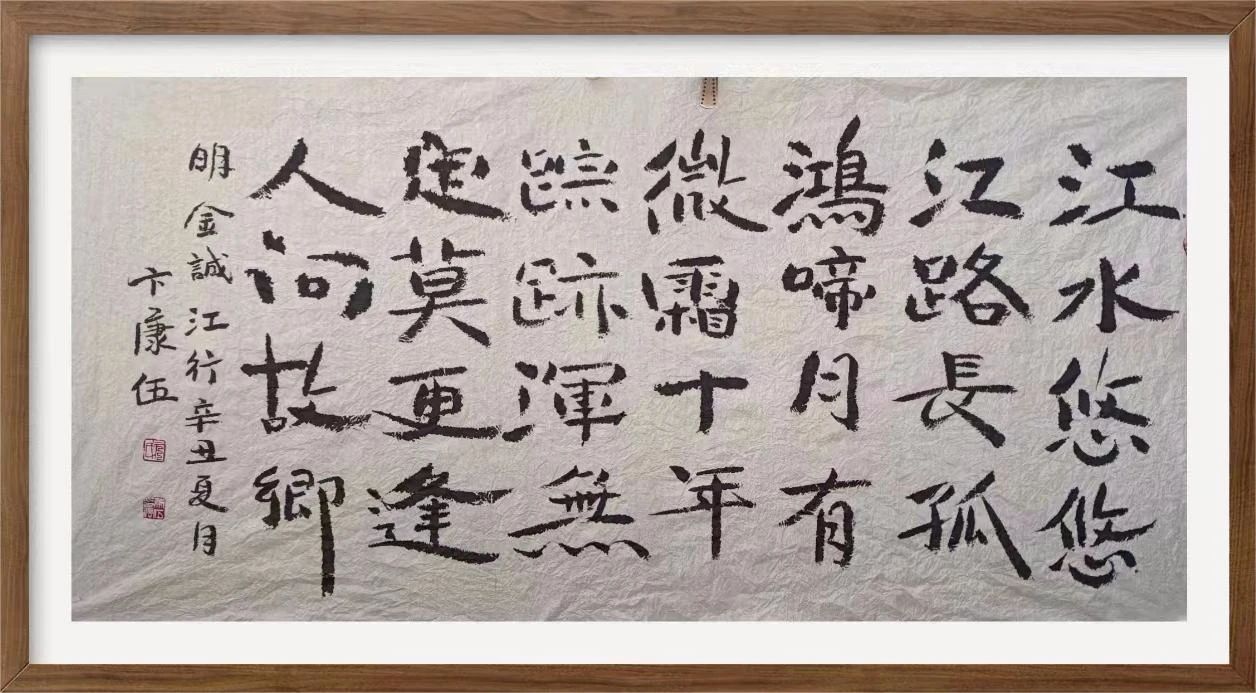 江水悠悠
江路長孤
鴻啼月有
微霜十年
踪跡渾無
定莫更逢
人问故鄉
明金誠江行辛丑夏月
卞康伍